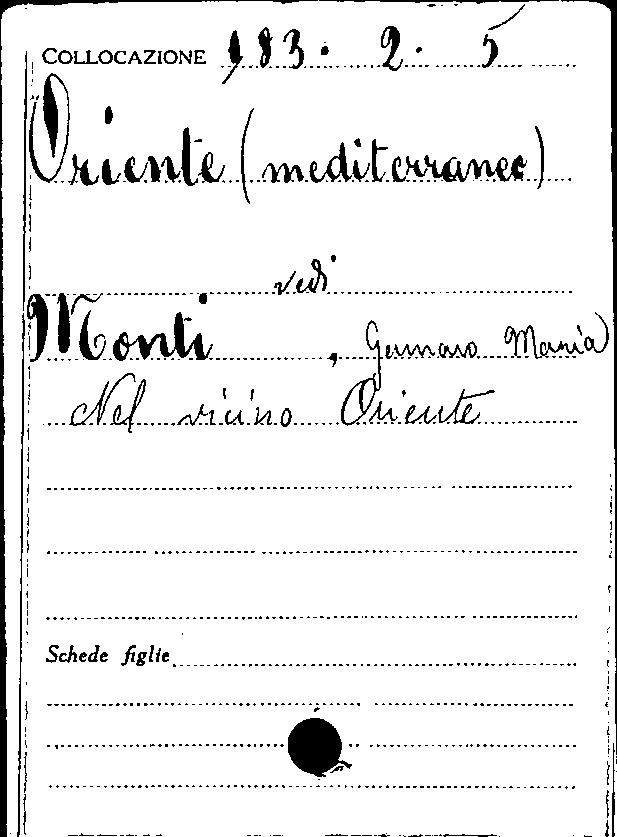 COLLOCAZIONE 183. 2. 5
Oriente (mediterraneo)
vedi
Monti, Gennaro Maria
Nel vicino Oriente
Schede figlie